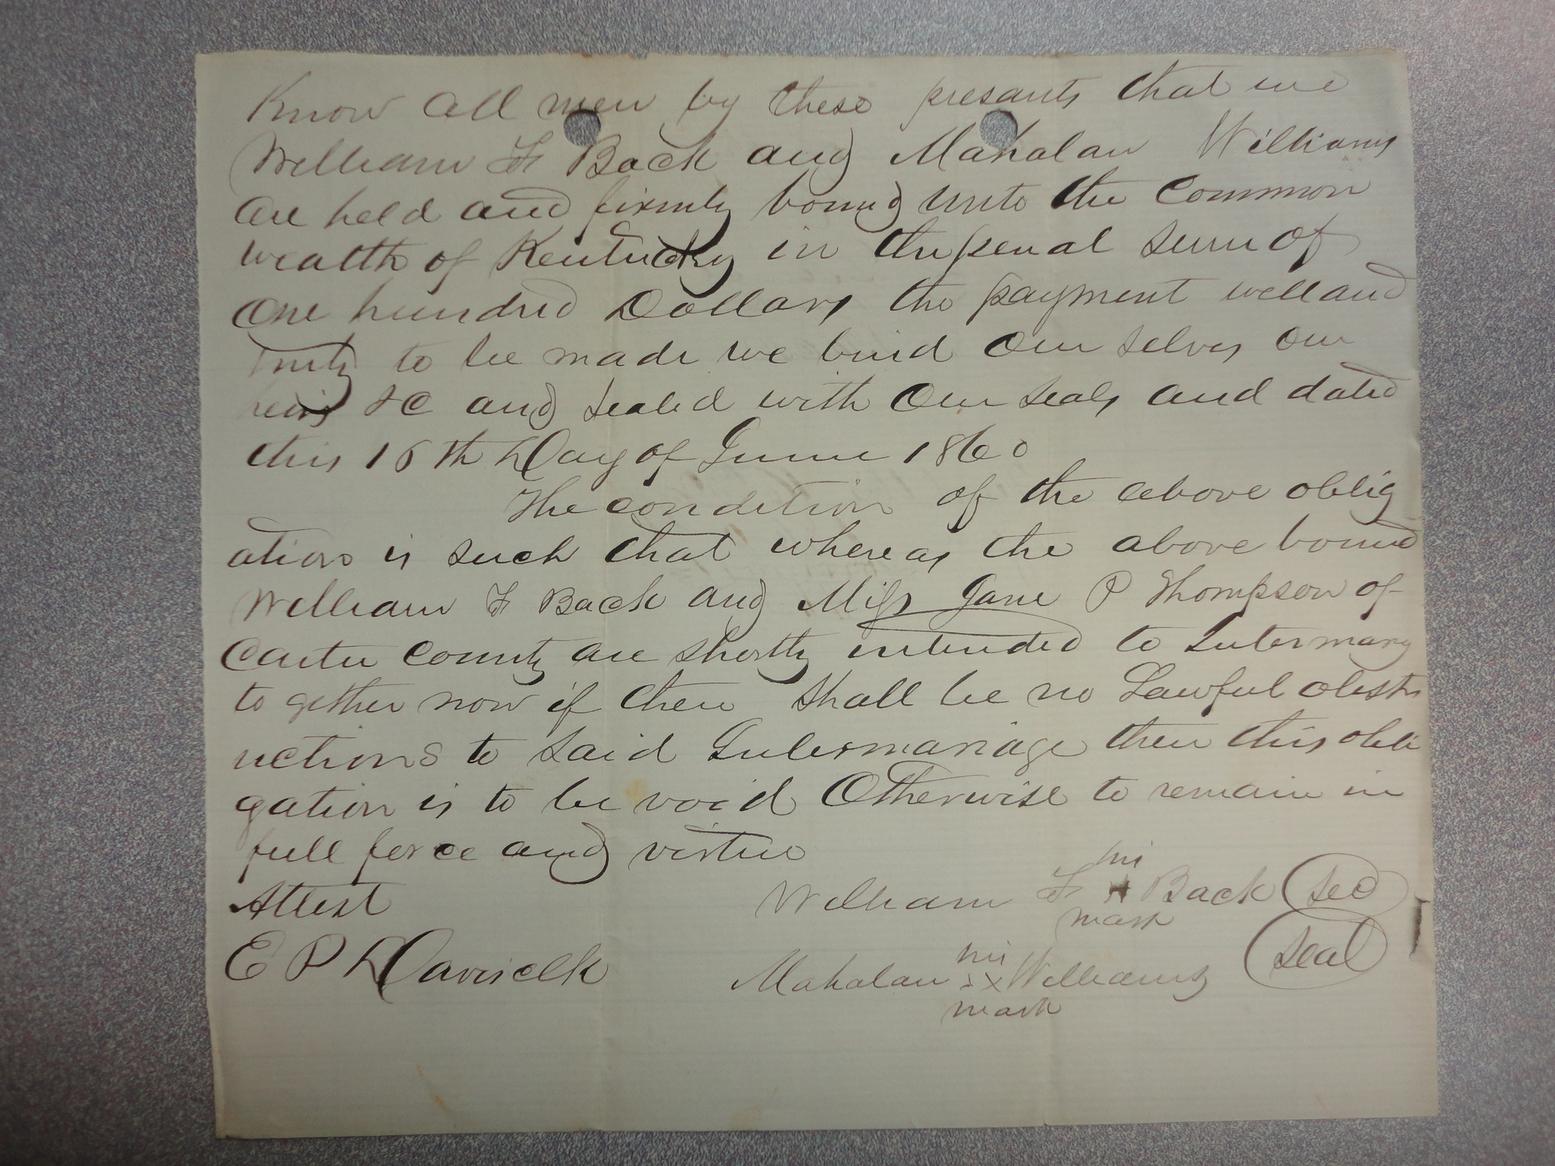 Know all men by these presants that we
William F Back and Mahalan Williams
are held and firmly bound unto the common
wealth of Kentucky in the penal sum of
One hundred Dollars the payment well and
truly to be made we bind our selvs our
heirs &C and sealed with our seals and dated
this 16th Day of June 1860
The condition of the above oblig
ation is such that whereas the above bound
William F Back and Miss Jane P Thompson of
Carter County are shortly intended to Intermarry
to gether now if there shall be no Lawful obstr
uctions to said Intermariage then this obli
gation is to be void Otherwise to remain in
full force and virtue
Attest
William F his x mark Back seal
E P Davis clk
Mahalan his x mark Williams seal